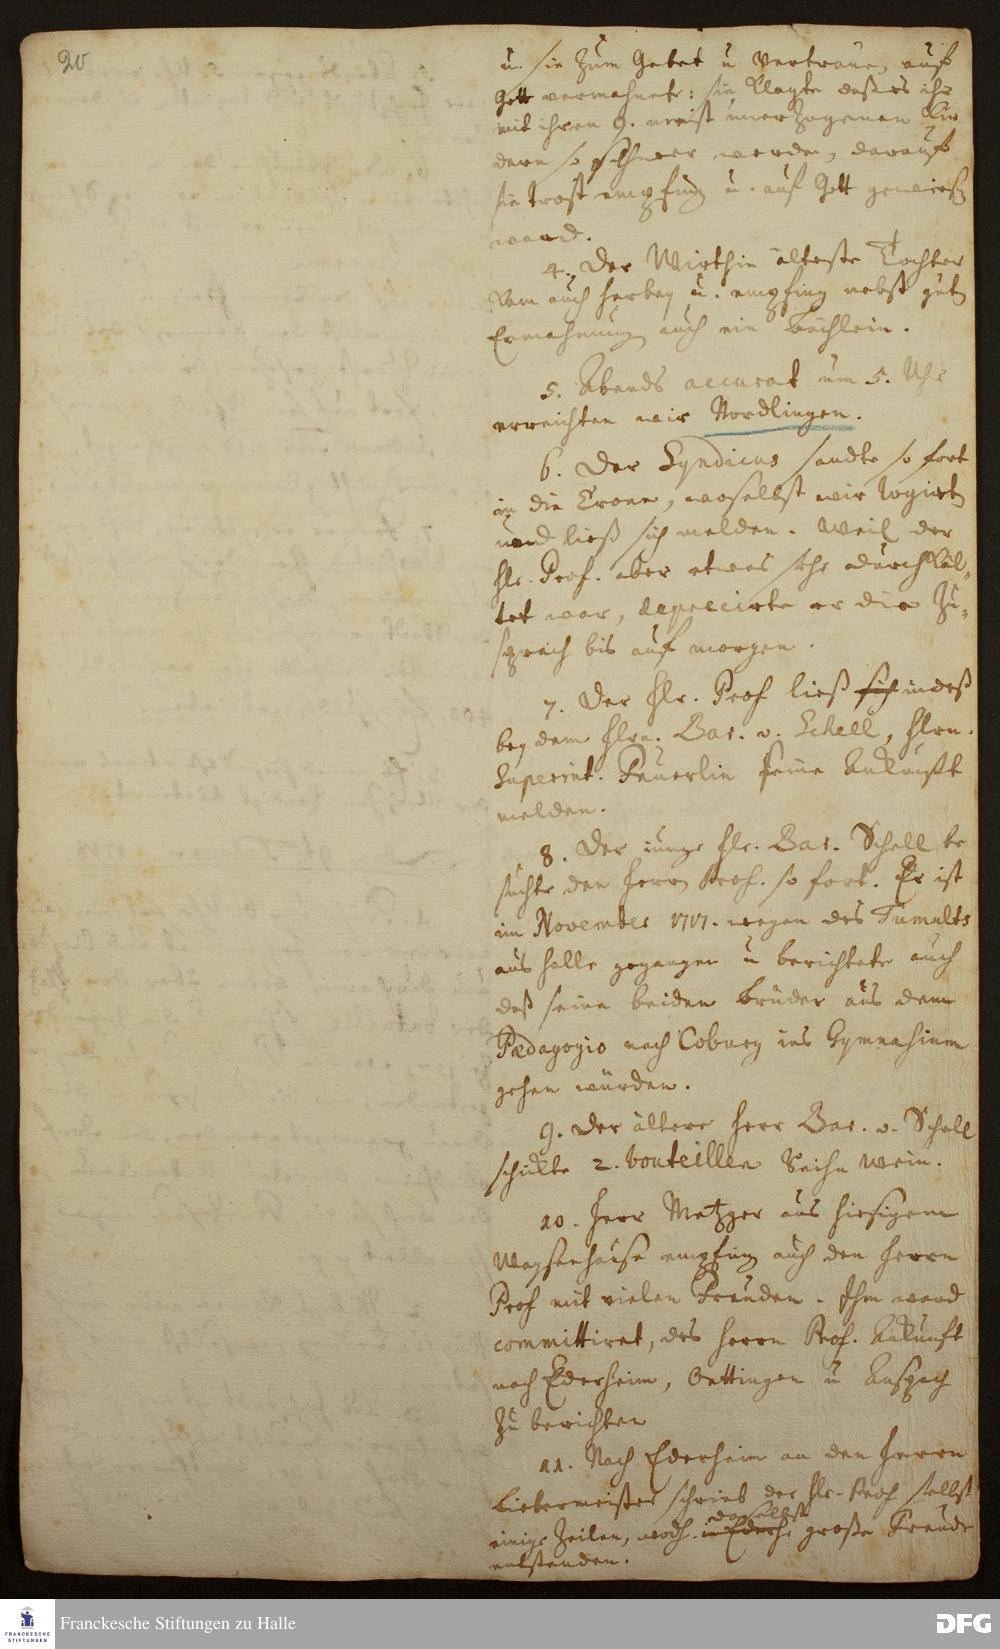 20
u. sie zum Gebet u Vertrauen auf
Gott vermahnete: sie klagte daß es ihr
mit ihren 9. meist unerzogenen Kin
dern so schwer werde, darauf
sie Trost empfing u. auf Gott gewiesen
ward.
4. Der Wirthin älteste Tochter
kam auch herbey u. empfing nebst guter
Ermahnung auch ein Büchlein.
5. Abends accurat um 5. Uhr
erreichten wir Nördlingen.
6. Der Syndicus sandte so fort
in die Crone, woselbst wir logirten
und ließ sich melden. Weil der
Hr. Prof. aber etwas sehr durchkäl-
tet war, deprecirte er die Zu-
sprach bis auf morgen.
7. Der Hr. Prof ließ sich indeß
bey dem Hrn. Bar. v. Schell, Hrn.
Superint. Feuerlin seine Ankunfft
melden.
8. Der iunge Hr. Bar. Schell be
suchte den Herrn Prof. so fort. Er ist
im November 1717. wegen des Tumults
aus Halle gegangen u berichtete auch
daß seine beiden Brüder aus dem
Pædagogio nach Coburg ins Gymnasium
gehen würden.
9. Der ältere Herr Bar. v. Schell
schickte 2. bouteillen Wein.
10. Herr Metzger aus hiesigem
Waysenhause empfing auch den Herrn
Prof mit vielen Freuden. Ihm ward
committiret, des Herrn Prof. Ankunft
nach Ederheim, Oettingen u Anspach
zu berichten
11. Nach Ederheim an den Herrn
Liebermeister schrieb der Hr. Prof selbst
einige Zeilen, in Ederh daselbst große Freude
entstanden.
FRANCKESCHE STIFTUNGEN
Franckesche Stiftungen zu Halle
DFG